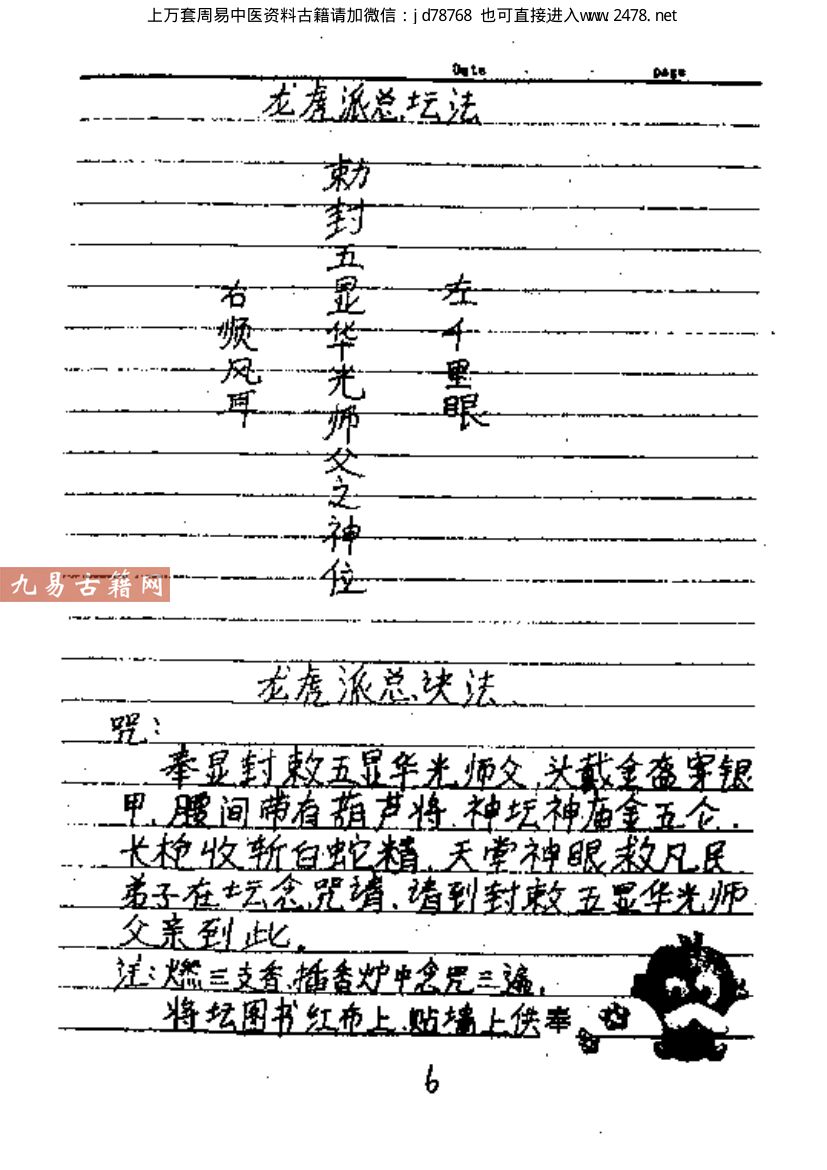 上万套周易中医资料古籍请加微信：jd78768 也可直接进入www.2478.net
Date Page
龙虎派总坛法
左千里眼
勅封五显华光师父之神位
右顺风耳
九易古籍网
龙虎派总决法
咒：
奉显封敕五显华光师父，头戴金盔穿银
甲，腰间带有葫芦将，神坛神庙金五仑，
长枪收斩白蛇精，天堂神眼救凡民
弟子在坛念咒请，请到封敕五显华光师
父亲到此。
注：燃三支香，插香炉中念咒三遍，
将坛图书红布上，贴墙上供奉
6